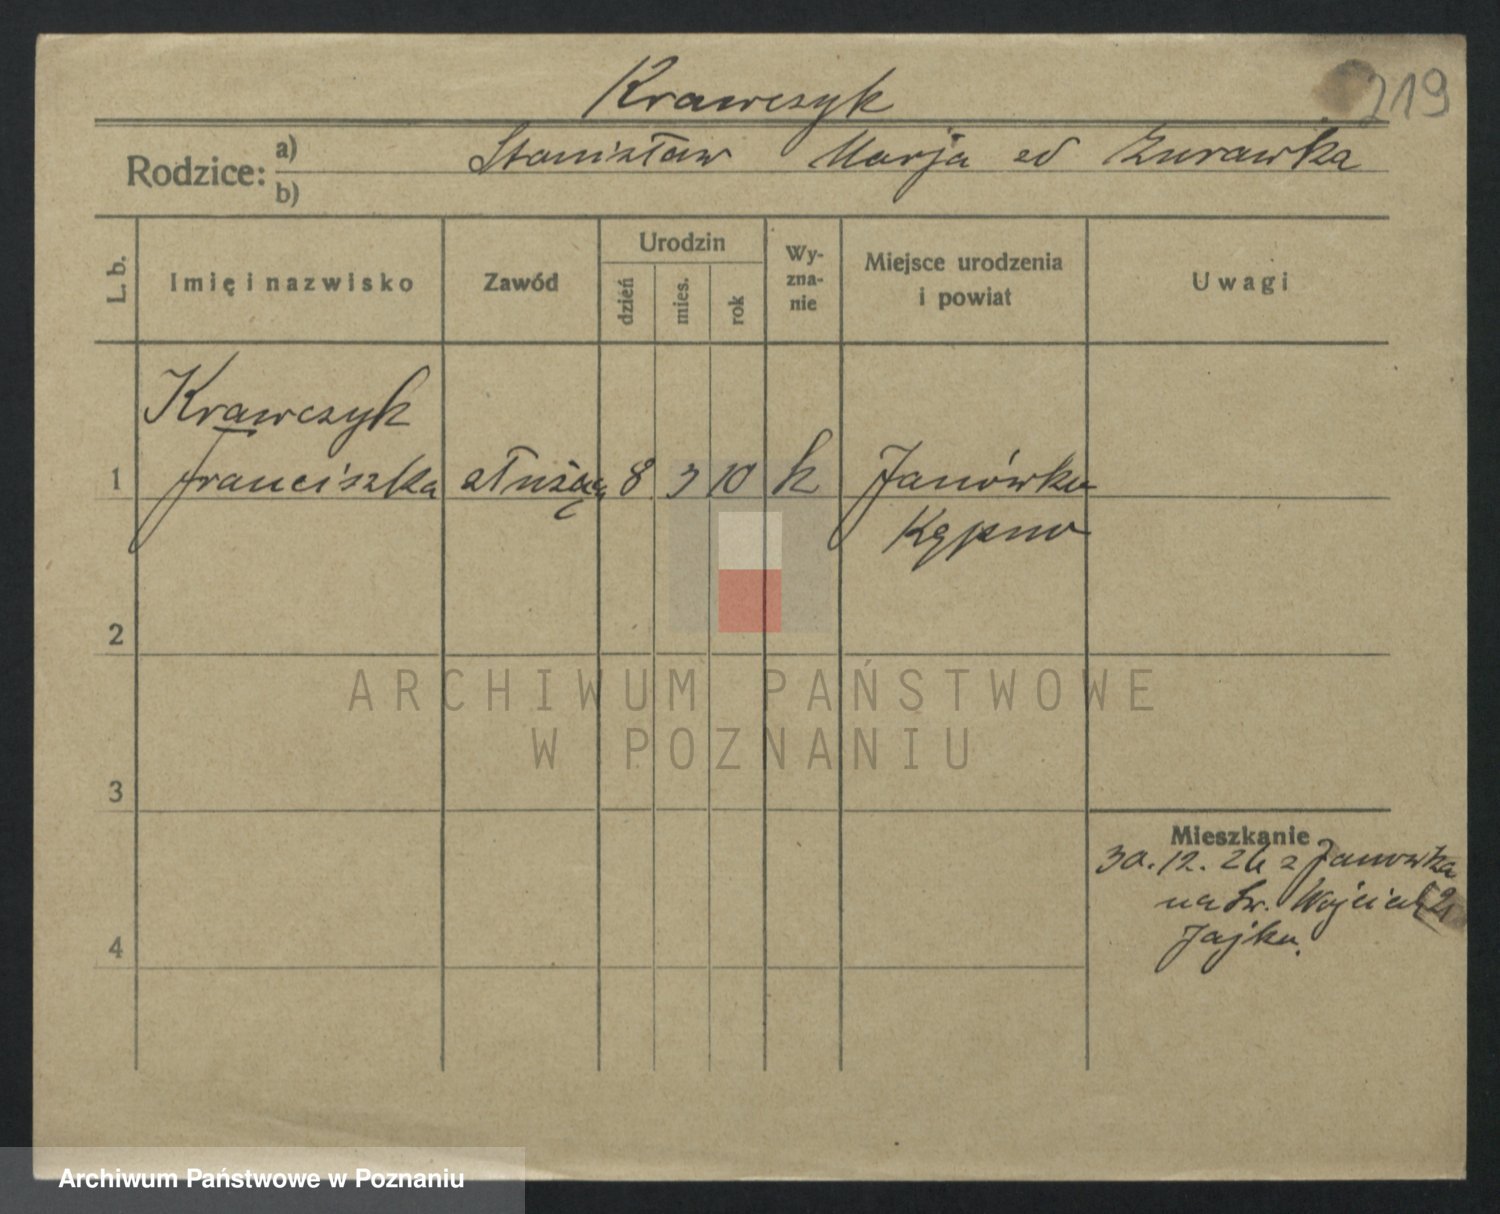 Krawczyk
219
Rodzice: a) Stanisław Marja ed Żurawka
b)
L. b.
Imię i nazwisko
Zawód
Urodzin
dzień
mies.
rok
Wy-
zna-
nie
Miejsce urodzenia
i powiat
Uwagi
Krawczyk
1 Franciszka służąca 8 3 10 k Janówka
Kępno
2
3
4
Mieszkanie
30.12.26 z Janówka
na Św. Wojciech 2
Jajka.
ARCHIWUM PAŃSTWOWE
W POZNANIU
Archiwum Państwowe w Poznaniu